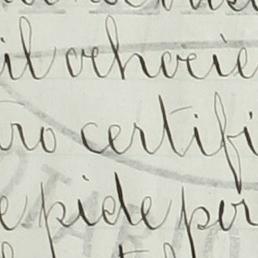 il ochocie
ro certifi
e pide per